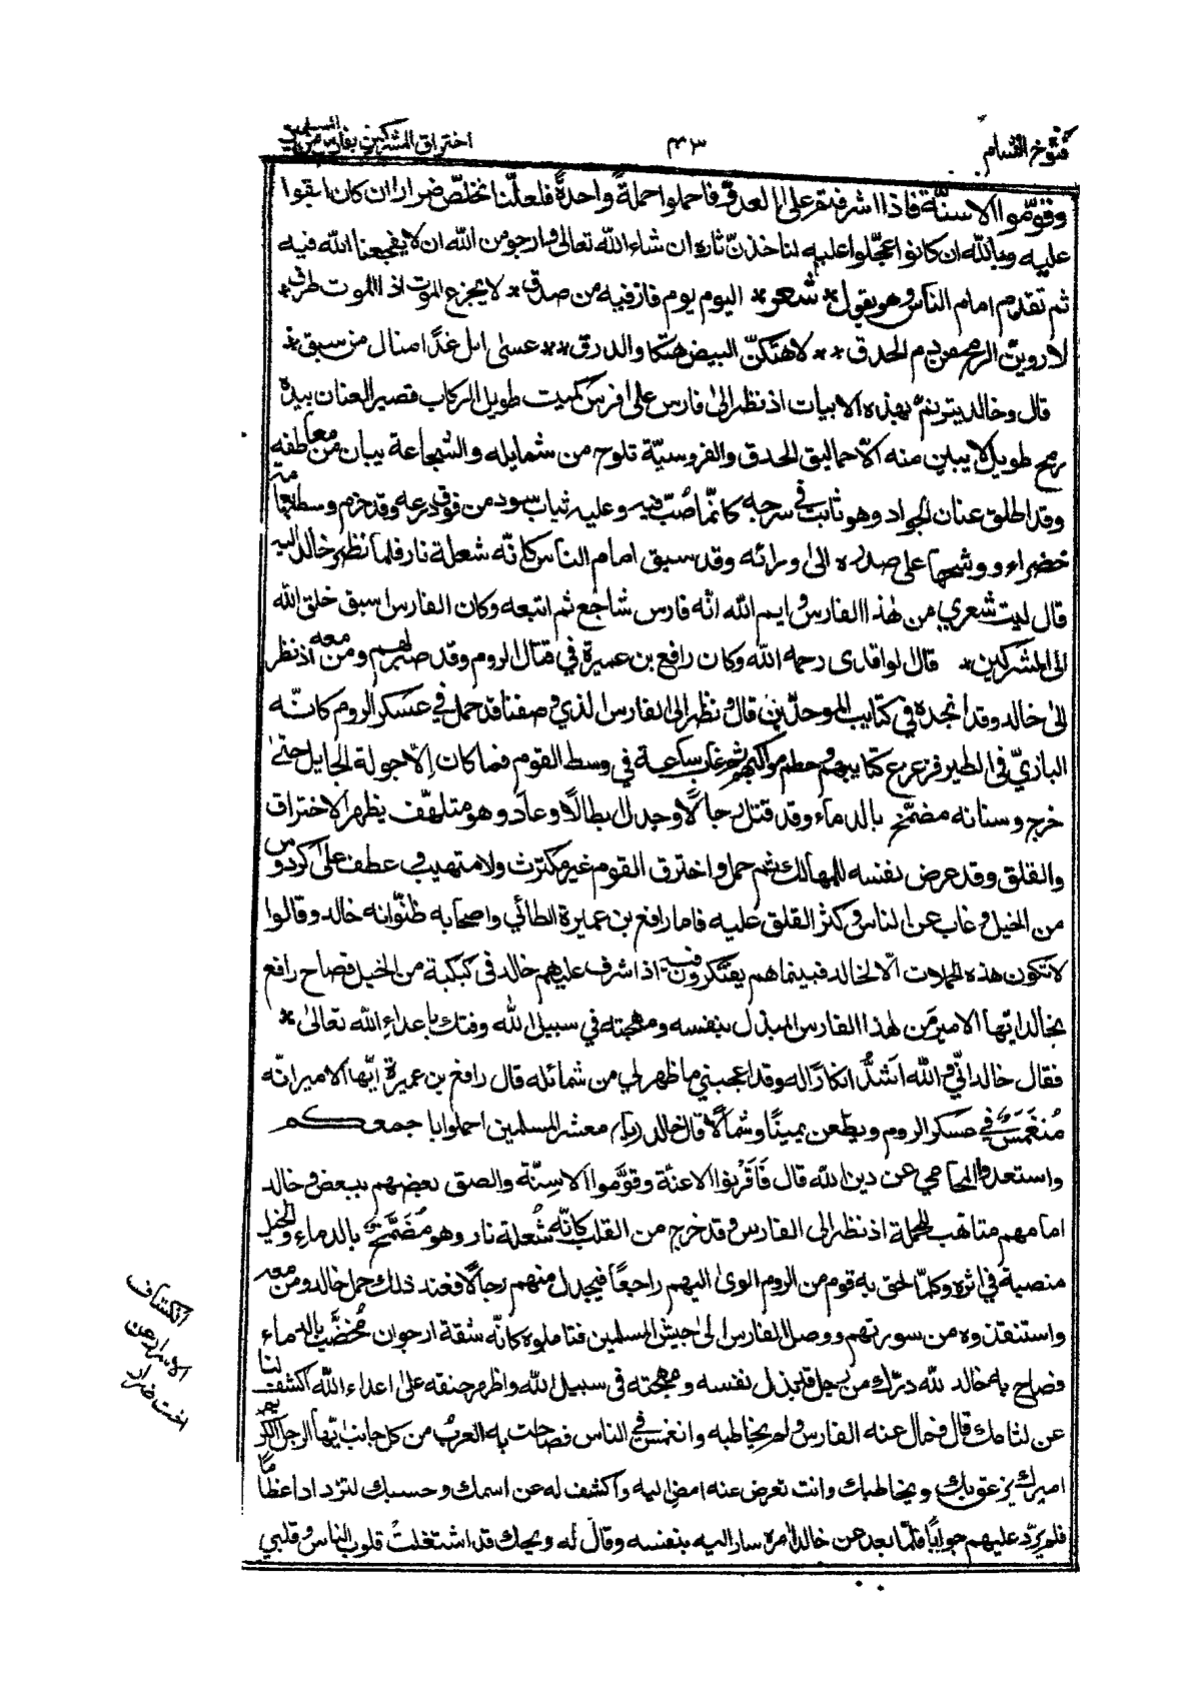 فتوح الشام
٤٣
اختراق المشركين بفارس من المسلمين
وقوّموا الاسنّة فاذا اشرفتم على العدوّ فاحملوا حملةً واحدةً فلعلّنا نخلّص ضرارا ان كان ابقوا
عليه وبالله ان كانوا عجّلوا عليه لناخذنّ ثاره ان شاء الله تعالى وارجو من الله ان لا يفجعنا الله فيه
ثم تقدم امام الناس وهو يقول * شعر * اليوم يوم فاز فيه من صدق * لا يجزع الموت اذا الموت طرق *
لاروينّ الرمح من دم الحدق ** لاهتكنّ البيض هتكا والدرق ** عسى انل غدًا منال من سبق *
قال وخالد يترنم بهذه الابيات اذ نظر الى فارس على فرس كميت طويل الركاب قصير العنان بيده
رمح طويل لا يبين منه الّا حماليق الحدق والفروسيّة تلوح من شمايله والشجاعة يبان من معاطفه
وقد اطلق عنان الجواد وهو ثابت في سرجه كانّما صُبّ فيه وعليه ثياب سود من فوق درعه وقد حزم وسطه بعمامة
خضراء ووشحها على صدره الى ورائه وقد سبق امام الناس كانّه شعلة نار فلما نظر خالد اليه
قال ليت شعري من هذا الفارس وايم الله انّه فارس شاجع ثم اتبعه وكان الفارس اسبق خلق الله
الى المشركين * قال لواقدى رحمه الله وكان رافع بن عميرة في قتال الروم وقد صبر لهم ومن معه اذ نظر
الى خالد وقد انجده في كتايب الموحدين قال ونظر الى الفارس الذي وصفنا قد حمل في عسكر الروم كانّه
البازيّ في الطير فزعزع كتايبهم وحطم مواكبهم ثم غاب ساعة في وسط القوم فما كان الّا جولة الجايل حتى
خرج وسنانه مضمّخ بالدماء وقد قتل رجالًا وجدل ابطالًا وعاد وهو متلهّف يظهر الاختراق
والقلق وقد عرض نفسه للمهالك ثم حمل واخترق القوم غير مكترث ولا متهيب وعطف على كردوس
من الخيل وغاب عن الناس وكثر القلق عليه فاما رافع بن عميرة الطائي واصحابه ظنّوا انه خالد وقالوا
لا تكون هذه الحملات الّا لخالد فبينما هم يفتكرون فيه اذ اشرف عليهم خالد في كبكبة من الخيل فصاح رافع
بخالد ايّها الامير مَن هذا الفارس المبذل بنفسه ومهجته في سبيل الله وفتك باعداءِ الله تعالى *
فقال خالد انّي والله اَشدُّ انكارًا له وقد اعجبني ما ظهر لي من شمائله قال رافع بن عميرة ايّها الامير انّه
مُنغَمسٌ في عسكر الروم ويطعن يمينًا وشمالًا قال خالد (رض) معشر المسلمين احملوا با جمعكم
واستعدوا للمحامي عن دين الله قال فَاَقْرَنوا الاعنّة وقوّموا الاسِنّة والصق بعضهم ببعض وخالد
امامهم متاهّب للحملة اذ نظر الى الفارس وقد خرج من القلب كانّه شُعلة نار وهو مُضَمَّخٌ بالدماء والخيل
منصبة في اثره وكلّما لحق به قوم من الروم الوى اليهم راجعًا فيجدل منهم رجالًا فعند ذلك حمل خالد ومن معه
واستنقذوه من سورتهم ووصل الفارس الى جيش المسلمين فتاملوه كانّه شقة ارجوان مُخضّب بالدماء
فصاح به خالد لله درّك من رجل قد بذل نفسه ومهجته في سبيل الله واظهر حنقه على اعداء الله اكشف لنا
عن لثامك قال فمال عنه الفارس ولم يخاطبه وانغمس في الناس فصاحت به العربُ من كل جانب ايّها الرجل الكريم
اميرك يزعق بك ويخاطبك وانت تعرض عنه امض اليه واكشف له عن اسمك وحسبك لتزداد اعظامًا
فلم يردّ عليهم جوابًا فلمّا بعد عن خالد امره سار اليه بنفسه وقال له ويحك قد اشتغلتْ قلوب الناس وقلبي
انكشاف
الامر عن
اخت ضرار